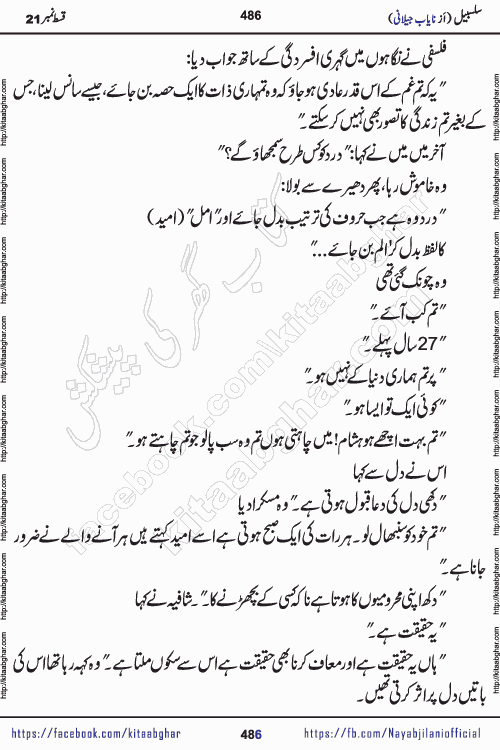 سلسبیل (از نایاب جیلانی)
486
قسط نمبر 21
فلسفی نے نگاہوں میں گہری افسردگی کے ساتھ جواب دیا:
"یہ کہ تم غم کے اس قدر عادی ہو جاؤ کہ وہ تمہاری ذات کا ایک حصہ بن جائے، جیسے سانس لینا، جس
کے بغیر تم زندگی کا تصور بھی نہیں کر سکتے۔"
آخر میں میں نے کہا: "درد کو کس طرح سمجھاؤ گے؟"
وہ خاموش رہا، پھر دھیرے سے بولا:
"درد وہ ہے جب حروف کی ترتیب بدل جائے اور "امل" (امید)
کا لفظ بدل کر 'الم' بن جائے ..."
وہ چونک گئی تھی
"تم کب آئے۔"
"27 سال پہلے۔"
"پر تم ہماری دنیا کے نہیں ہو۔"
"کوئی ایک تو ایسا ہو۔"
"تم بہت اچھے ہو ہشام! میں چاہتی ہوں تم وہ سب پا لو جو تم چاہتے ہو۔"
اس نے دل سے کہا
"دکھی دل کی دعا قبول ہوتی ہے۔" وہ مسکرا دیا
"تم خود کو سنبھال لو۔ ہر رات کی ایک صبح ہوتی ہے اسے امید کہتے ہیں ہر آنے والے نے ضرور
جانا ہے۔"
"دکھ اپنی محرومیوں کا ہوتا ہے نا کہ کسی کے بچھڑنے کا۔" شافیہ نے کہا
"یہ حقیقت ہے۔"
"ہاں یہ حقیقت ہے اور معاف کرنا بھی حقیقت ہے اس سے سکوں ملتا ہے۔" وہ کہہ رہا تھا اس کی
باتیں دل پر اثر کرتی تھیں۔
کتاب گھر کی پیشکش
facebook.com/kitaabghar
kitaabghar.com
http://kitaabghar.com
https://facebook.com/kitaabghar
486
https://fb.com/Nayabjilaniofficial